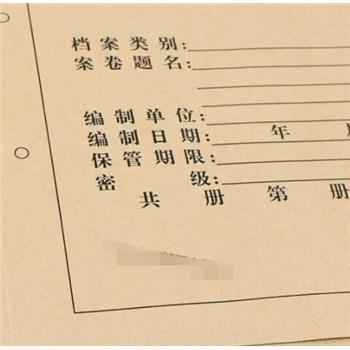 档案类别:
案卷题名:
编制单位:
编制日期: 年 月
保管期限:
密 级:
共 册 第 册